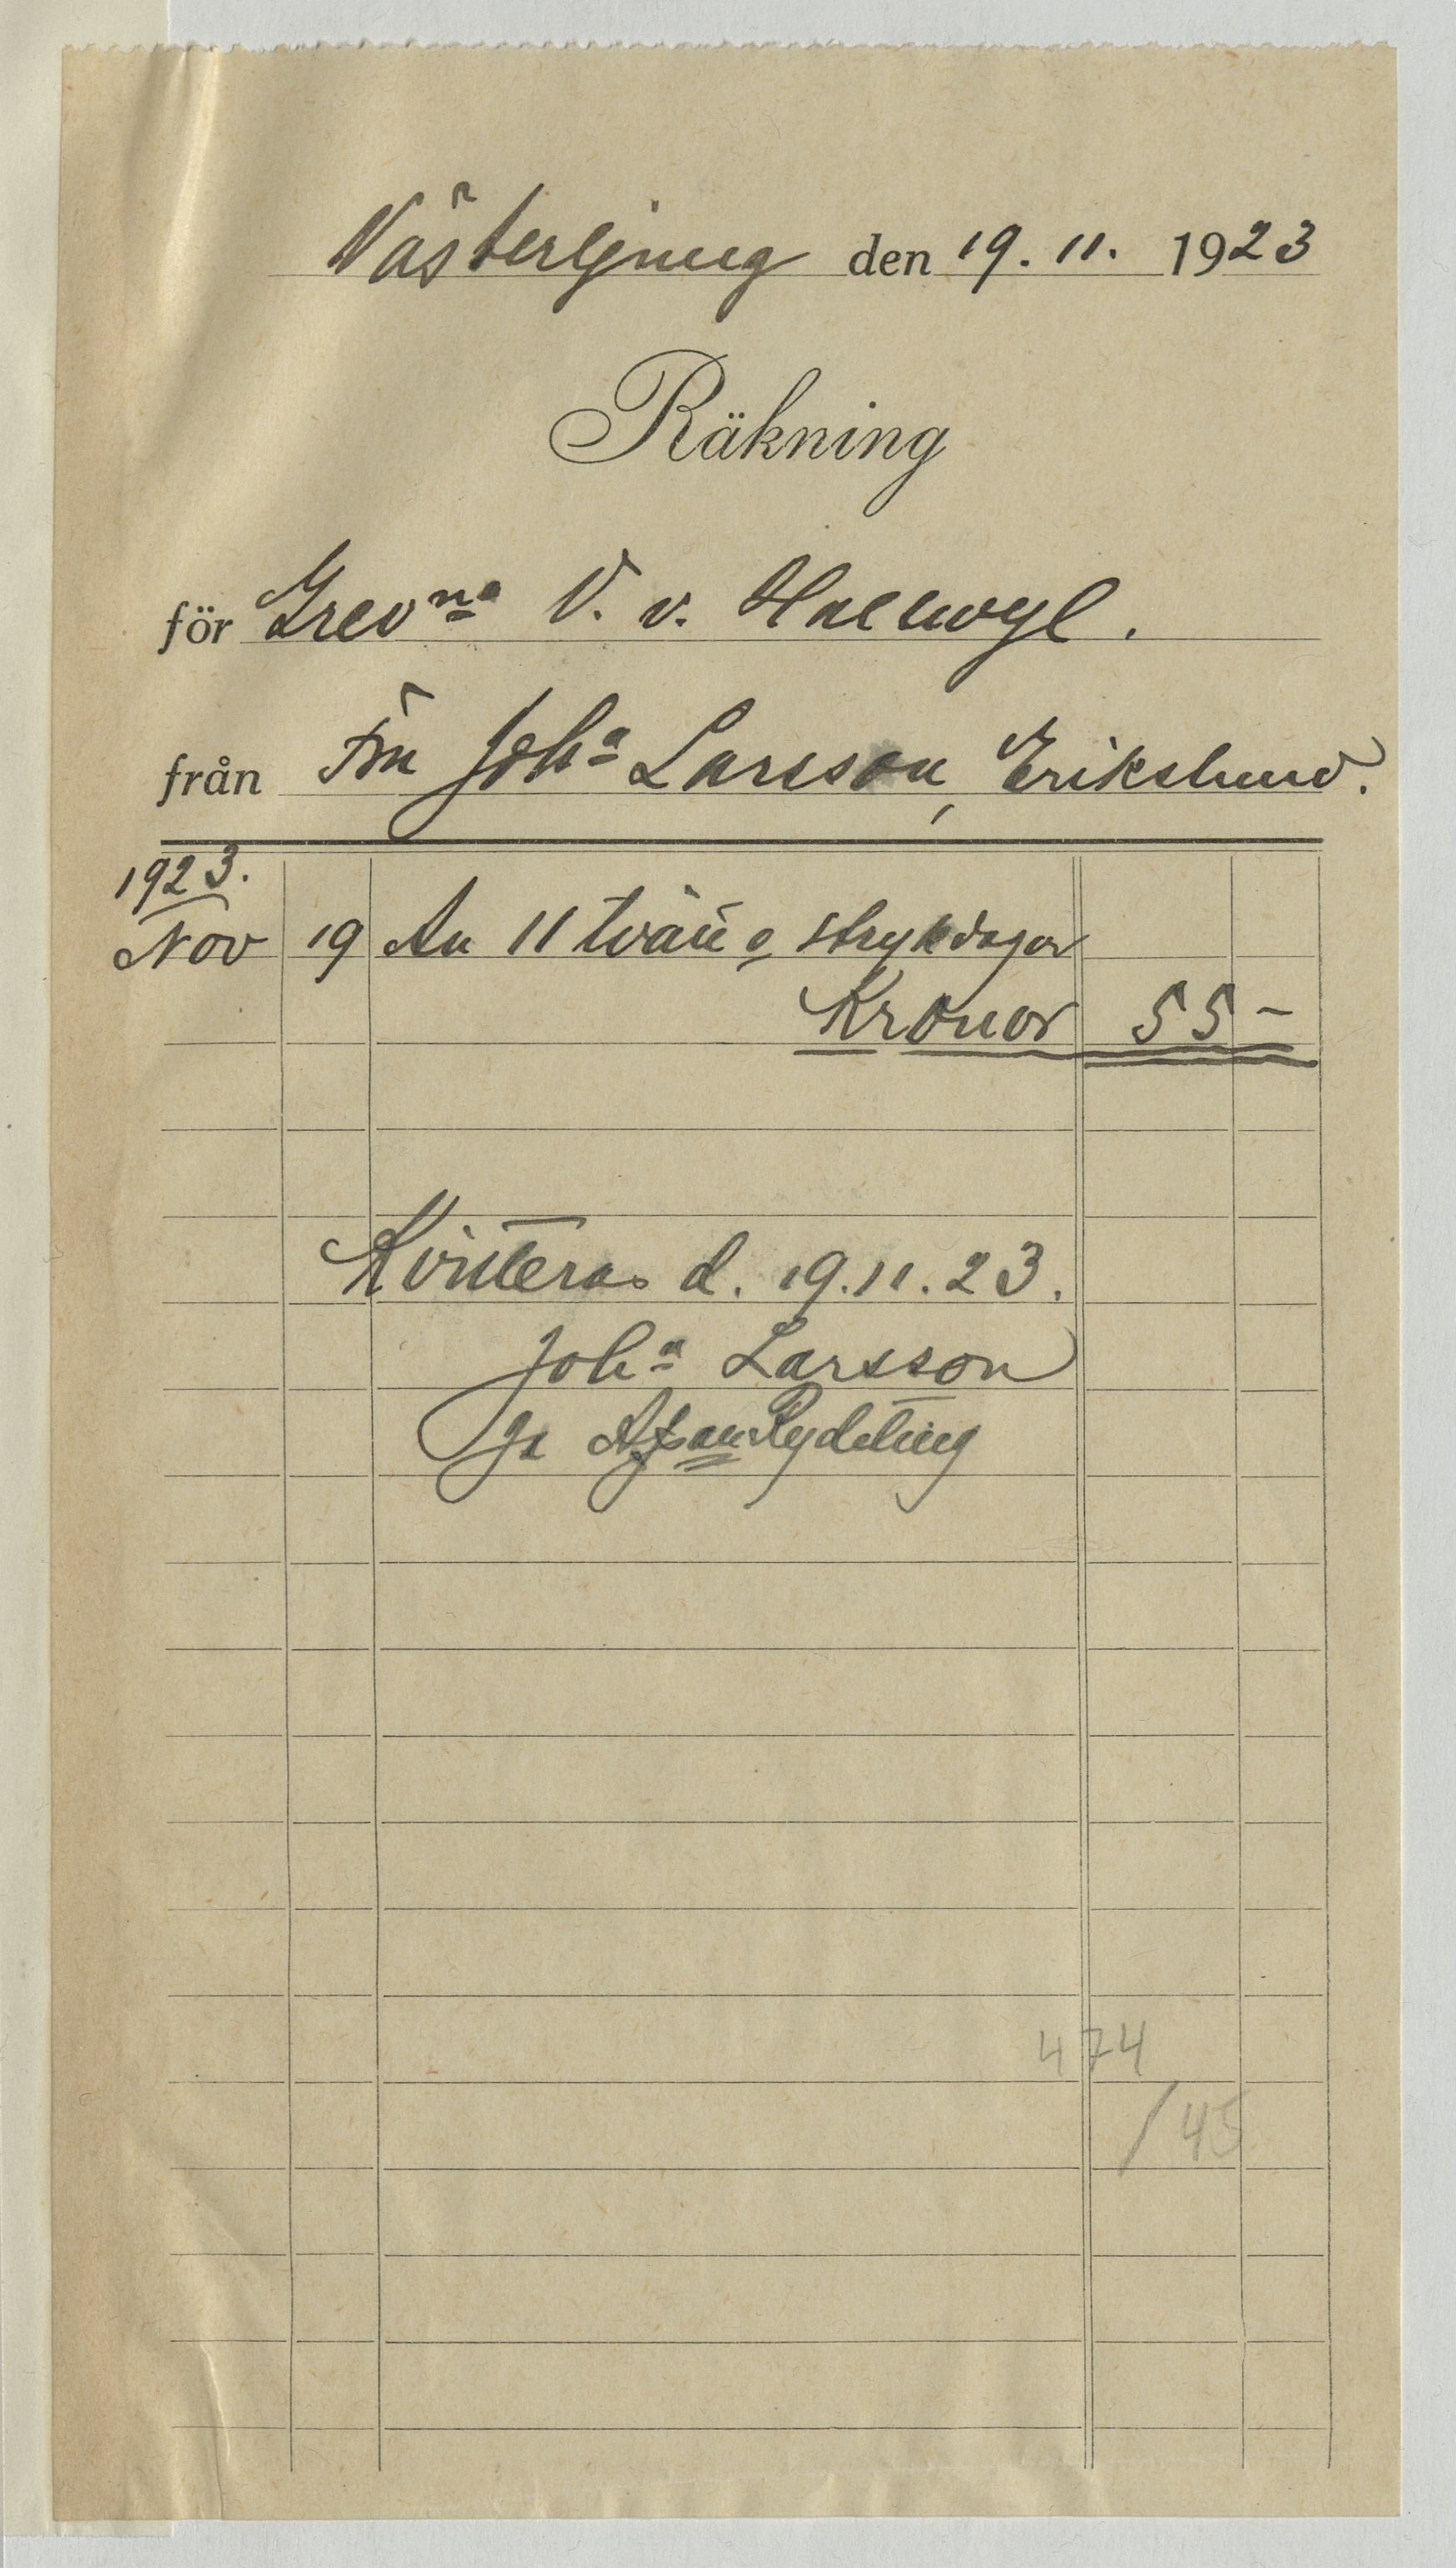 Västerljung den 19. 11. 1923
Räkning
för Grevna V. v. Hallwyl.
från Fru Joha Larsson, Erikslund.
1923.
Nov 19 An 11 tvätt o strykdagar
Kronor 55 –
Kvitteras d. 19.11.23.
Joha Larsson
474
/ 45